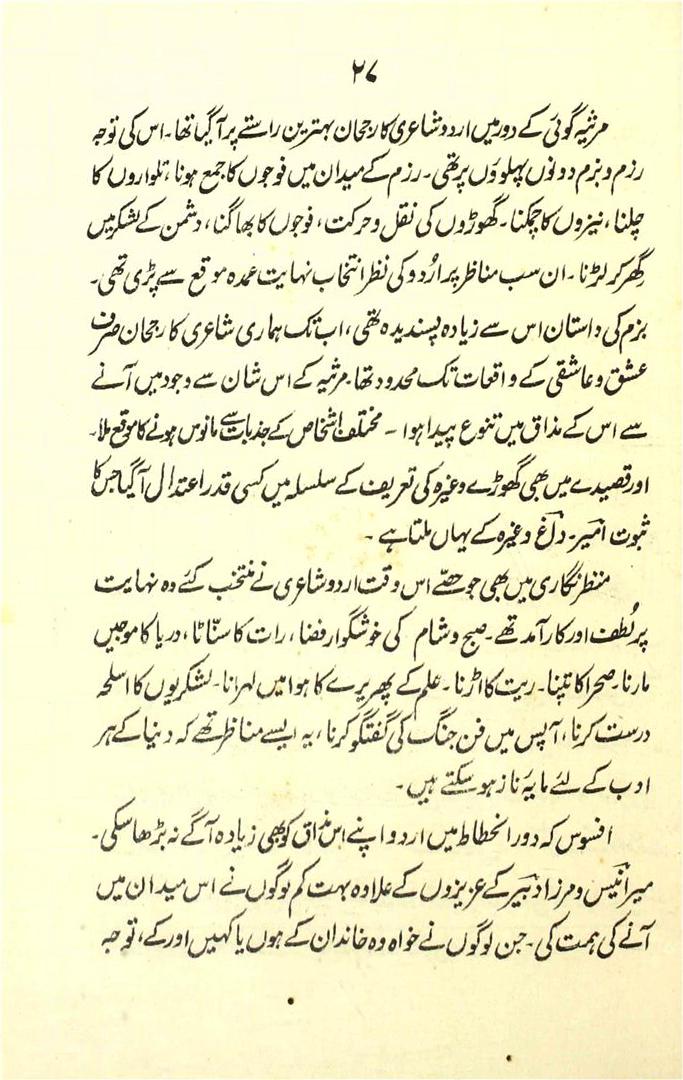 ۲۷
مرثیہ گوئی کے دور میں اردو شاعری کا رجحان بہترین راستے پر آگیا تھا۔ اس کی توجہ
رزم و بزم دونوں پہلوؤں پر تھی۔ رزم کے میدان میں فوجوں کا جمع ہونا، تلواروں کا
چلنا، نیزوں کا چمکنا۔ گھوڑوں کی نقل و حرکت، فوجوں کا بھاگنا، دشمن کے لشکر میں
گھر کر لڑنا۔ ان سب مناظر پر اُردو کی نظر انتخاب نہایت عمدہ موقع سے پڑی تھی۔
بزم کی داستان اس سے زیادہ پسندیدہ تھی، اب تک ہماری شاعری کا رجحان صرف
عشق و عاشقی کے واقعات تک محدود تھا۔ مرثیہ کے اس شان سے وجود میں آنے
سے اس کے مذاق میں تنوع پیدا ہوا ۔ مختلف اشخاص کے جذبات سے مانوس ہونے کا موقع ملا۔
اور قصیدے میں بھی گھوڑے وغیرہ کی تعریف کے سلسلہ میں کسی قدر اعتدال آگیا جس کا
ثبوت امیر۔ داغ وغیرہ کے یہاں ملتا ہے ۔
منظر نگاری میں بھی جو حصّے اس وقت اردو شاعری نے منتخب کئے وہ نہایت
پر لُطف اور کارآمد تھے۔ صبح و شام کی خوشگوار فضا، رات کا سنّاٹا، دریا کا موجیں
مارنا۔ صحرا کا تپنا۔ ریت کا اڑنا۔ علم کے پھریرے کا ہوا میں لہرانا۔ لشکریوں کا اسلحہ
درست کرنا، آپس میں فن جنگ کی گفتگو کرنا، یہ ایسے مناظر تھے کہ دنیا کے ہر
ادب کے لئے مایۂ ناز ہو سکتے ہیں۔
افسوس کہ دور انحطاط میں اردو اپنے اس مذاق کو بھی زیادہ آگے نہ بڑھا سکی۔
میر انیس و مرزا دبیر کے عزیزوں کے علاوہ بہت کم لوگوں نے اس میدان میں
آنے کی ہمت کی۔ جن لوگوں نے خواہ وہ خاندان کے ہوں یا کہیں اور کے، توجہ